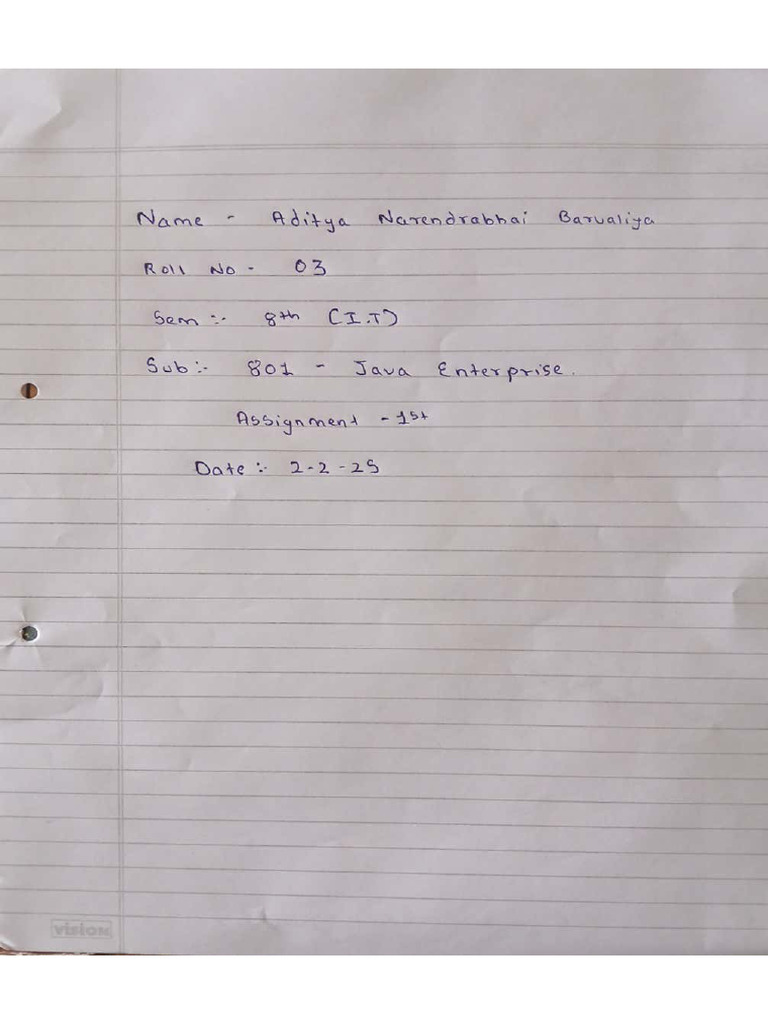 Name - Aditya Narendrabhai Barvaliya
Roll No - 03
Sem :- 8th (I.T)
Sub :- 801 - Java Enterprise.
Assignment - 1st
Date :- 2-2-25
vision